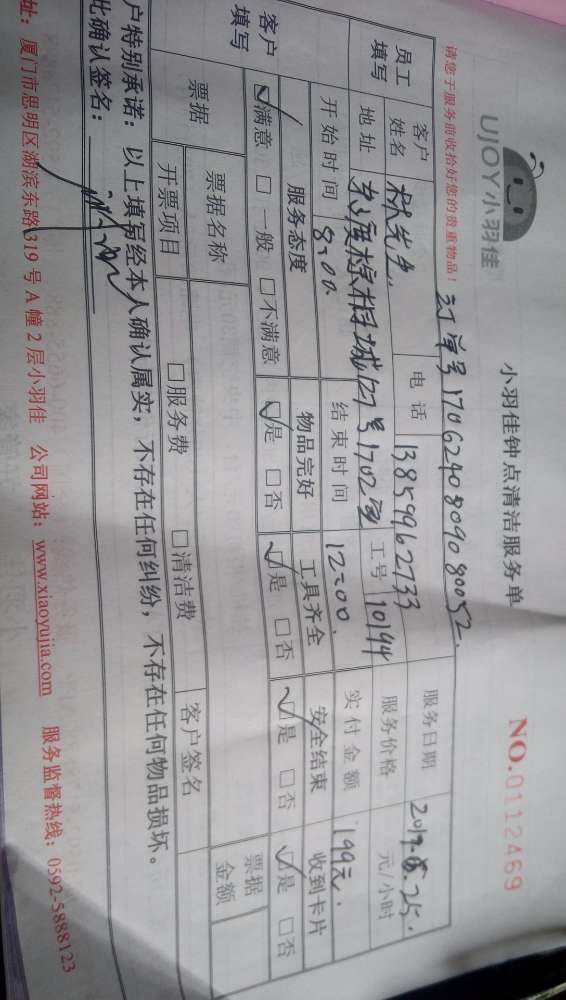 UJOY小羽佳
小羽佳钟点清洁服务单
NO.0112469
请您于服务前收拾好您的贵重物品！
订单号1706240809080052
员工填写
客户姓名 林先生 电话 13859962733 服务日期 2017.6.25.
地址 127号1702室 工号 10194 服务价格 元/小时
开始时间 8:00 结束时间 12:00. 实付金额 199元.
客户填写
服务态度 物品完好 工具齐全 安全结束 收到卡片
☑满意 □一般 □不满意 ☑是 □否 ☑是 □否 ☑是 □否 ☑是 □否
票据 票据名称 票据金额
开票项目 □服务费 □清洁费 客户签名
户特别承诺：以上填写经本人确认属实，不存在任何纠纷，不存在任何物品损坏。
此确认签名：
址：厦门市思明区湖滨东路319号A幢2层小羽佳 公司网站：www.xiaoyujia.com 服务监督热线：0592-5888123